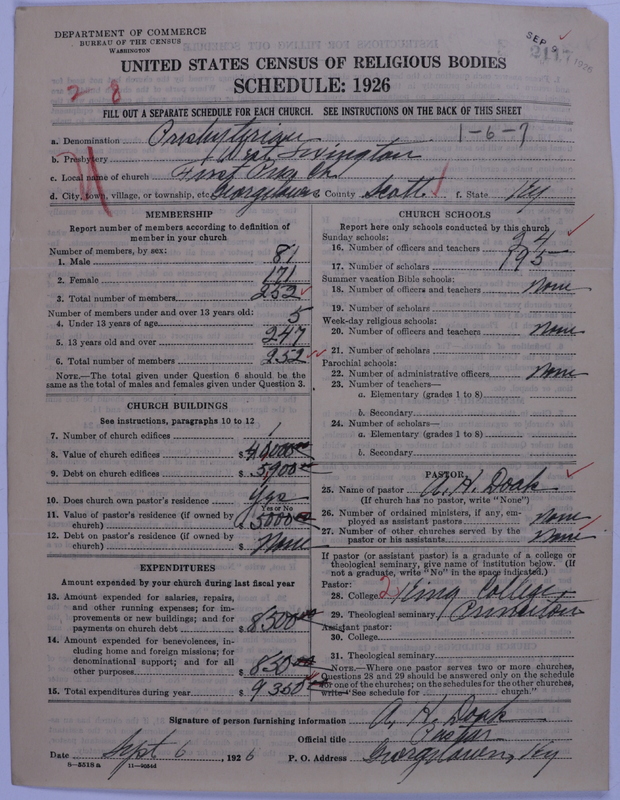 DEPARTMENT OF COMMERCE
BUREAU OF THE CENSUS
WASHINGTON
SEP 9 1926
2117
UNITED STATES CENSUS OF RELIGIOUS BODIES
SCHEDULE: 1926
2 8
FILL OUT A SEPARATE SCHEDULE FOR EACH CHURCH. SEE INSTRUCTIONS ON THE BACK OF THIS SHEET
1-6-7
a. Denomination
b. Presbytery
c. Local name of church First
d. City, town, village, or township, etc. Georgetown e. County Scott f. State Ky
MEMBERSHIP
Report number of members according to definition of
member in your church
Number of members, by sex:
1. Male 81
2. Female 171
3. Total number of members 252
Number of members under and over 13 years old:
4. Under 13 years of age 5
5. 13 years old and over 247
6. Total number of members 252
NOTE.—The total given under Question 6 should be
same as the total of males and females given under Question 3.
CHURCH BUILDINGS
See instructions, paragraphs 10 to 12
7. Number of church edifices 1
8. Value of church edifices $ 40000 00
9. Debt on church edifices $ 5,900 00
10. Does church own pastor's residence Yes
Yes or No
11. Value of pastor's residence (if owned by
church) $ 5000 00
12. Debt on pastor's residence (if owned by
church) $ None
EXPENDITURES
Amount expended by your church during last fiscal year
13. Amount expended for salaries, repairs,
and other running expenses; for im-
provements or new buildings; and for
payments on church debt $ 8500 00
14. Amount expended for benevolences, in-
cluding home and foreign missions; for
denominational support; and for all
other purposes $ 850 00
15. Total expenditures during year $ 9350 00
CHURCH SCHOOLS
Report here only schools conducted by this church
Sunday schools:
16. Number of officers and teachers 24
17. Number of scholars 195
Summer vacation Bible schools:
18. Number of officers and teachers None
19. Number of scholars
Week-day religious schools:
20. Number of officers and teachers None
21. Number of scholars
Parochial schools:
22. Number of administrative officers None
23. Number of teachers—
a. Elementary (grades 1 to 8)
b. Secondary
24. Number of scholars—
a. Elementary (grades 1 to 8)
b. Secondary
PASTOR
25. Name of pastor A. H. Doak
(If church has no pastor, write "None")
26. Number of ordained ministers, if any, em-
ployed as assistant pastors None
27. Number of other churches served by the
pastor or his assistants None
If pastor (or assistant pastor) is a graduate of a college or
theological seminary, give name of institution below. (If
not a graduate, write "No" in the space indicated.)
Pastor:
28. College 2 King College
29. Theological seminary Princeton
Assistant pastor:
30. College
31. Theological seminary
NOTE.—Where one pastor serves two or more churches,
Questions 28 and 29 should be answered only on the schedule
for one of the churches; on the schedules for the other churches,
write "See schedule for church."
Signature of person furnishing information A. H. Doak
Official title Pastor
Date Sept 6, 1926 P. O. Address Georgetown, Ky
8-5518a